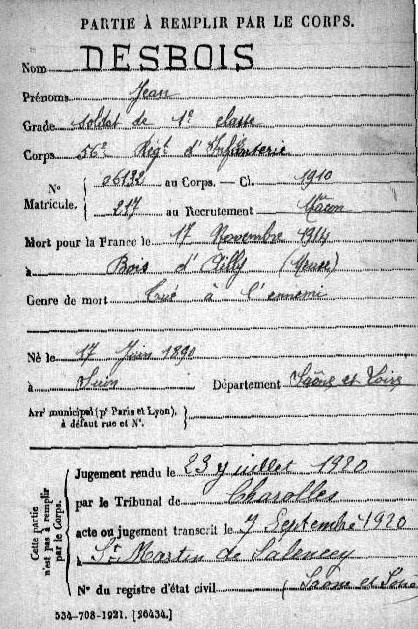 PARTIE À REMPLIR PAR LE CORPS.
Nom DESBOIS
Prénoms Jean
Grade soldat de 1e classe
Corps 56e Régt d'Infanterie
N° 06132 au Corps. — Cl. 1910
Matricule. 217 au Recrutement Mâcon
Mort pour la France le 17 Novembre 1914
à Bois d'Ailly (Meuse)
Genre de mort Tué à l'ennemi
Né le 17 Juin 1890
à Suin Département Saône et Loire
Arr^t municipal (p^r Paris et Lyon), à défaut rue et N°.
Cette partie n'est pas à remplir par le Corps.
Jugement rendu le 23 juillet 1920
par le Tribunal de Charolles
acte ou jugement transcrit le 7 Septembre 1920
à St Martin de Salencey
N° du registre d'état civil (Saône et Loire
534-708-1921. [26434.]